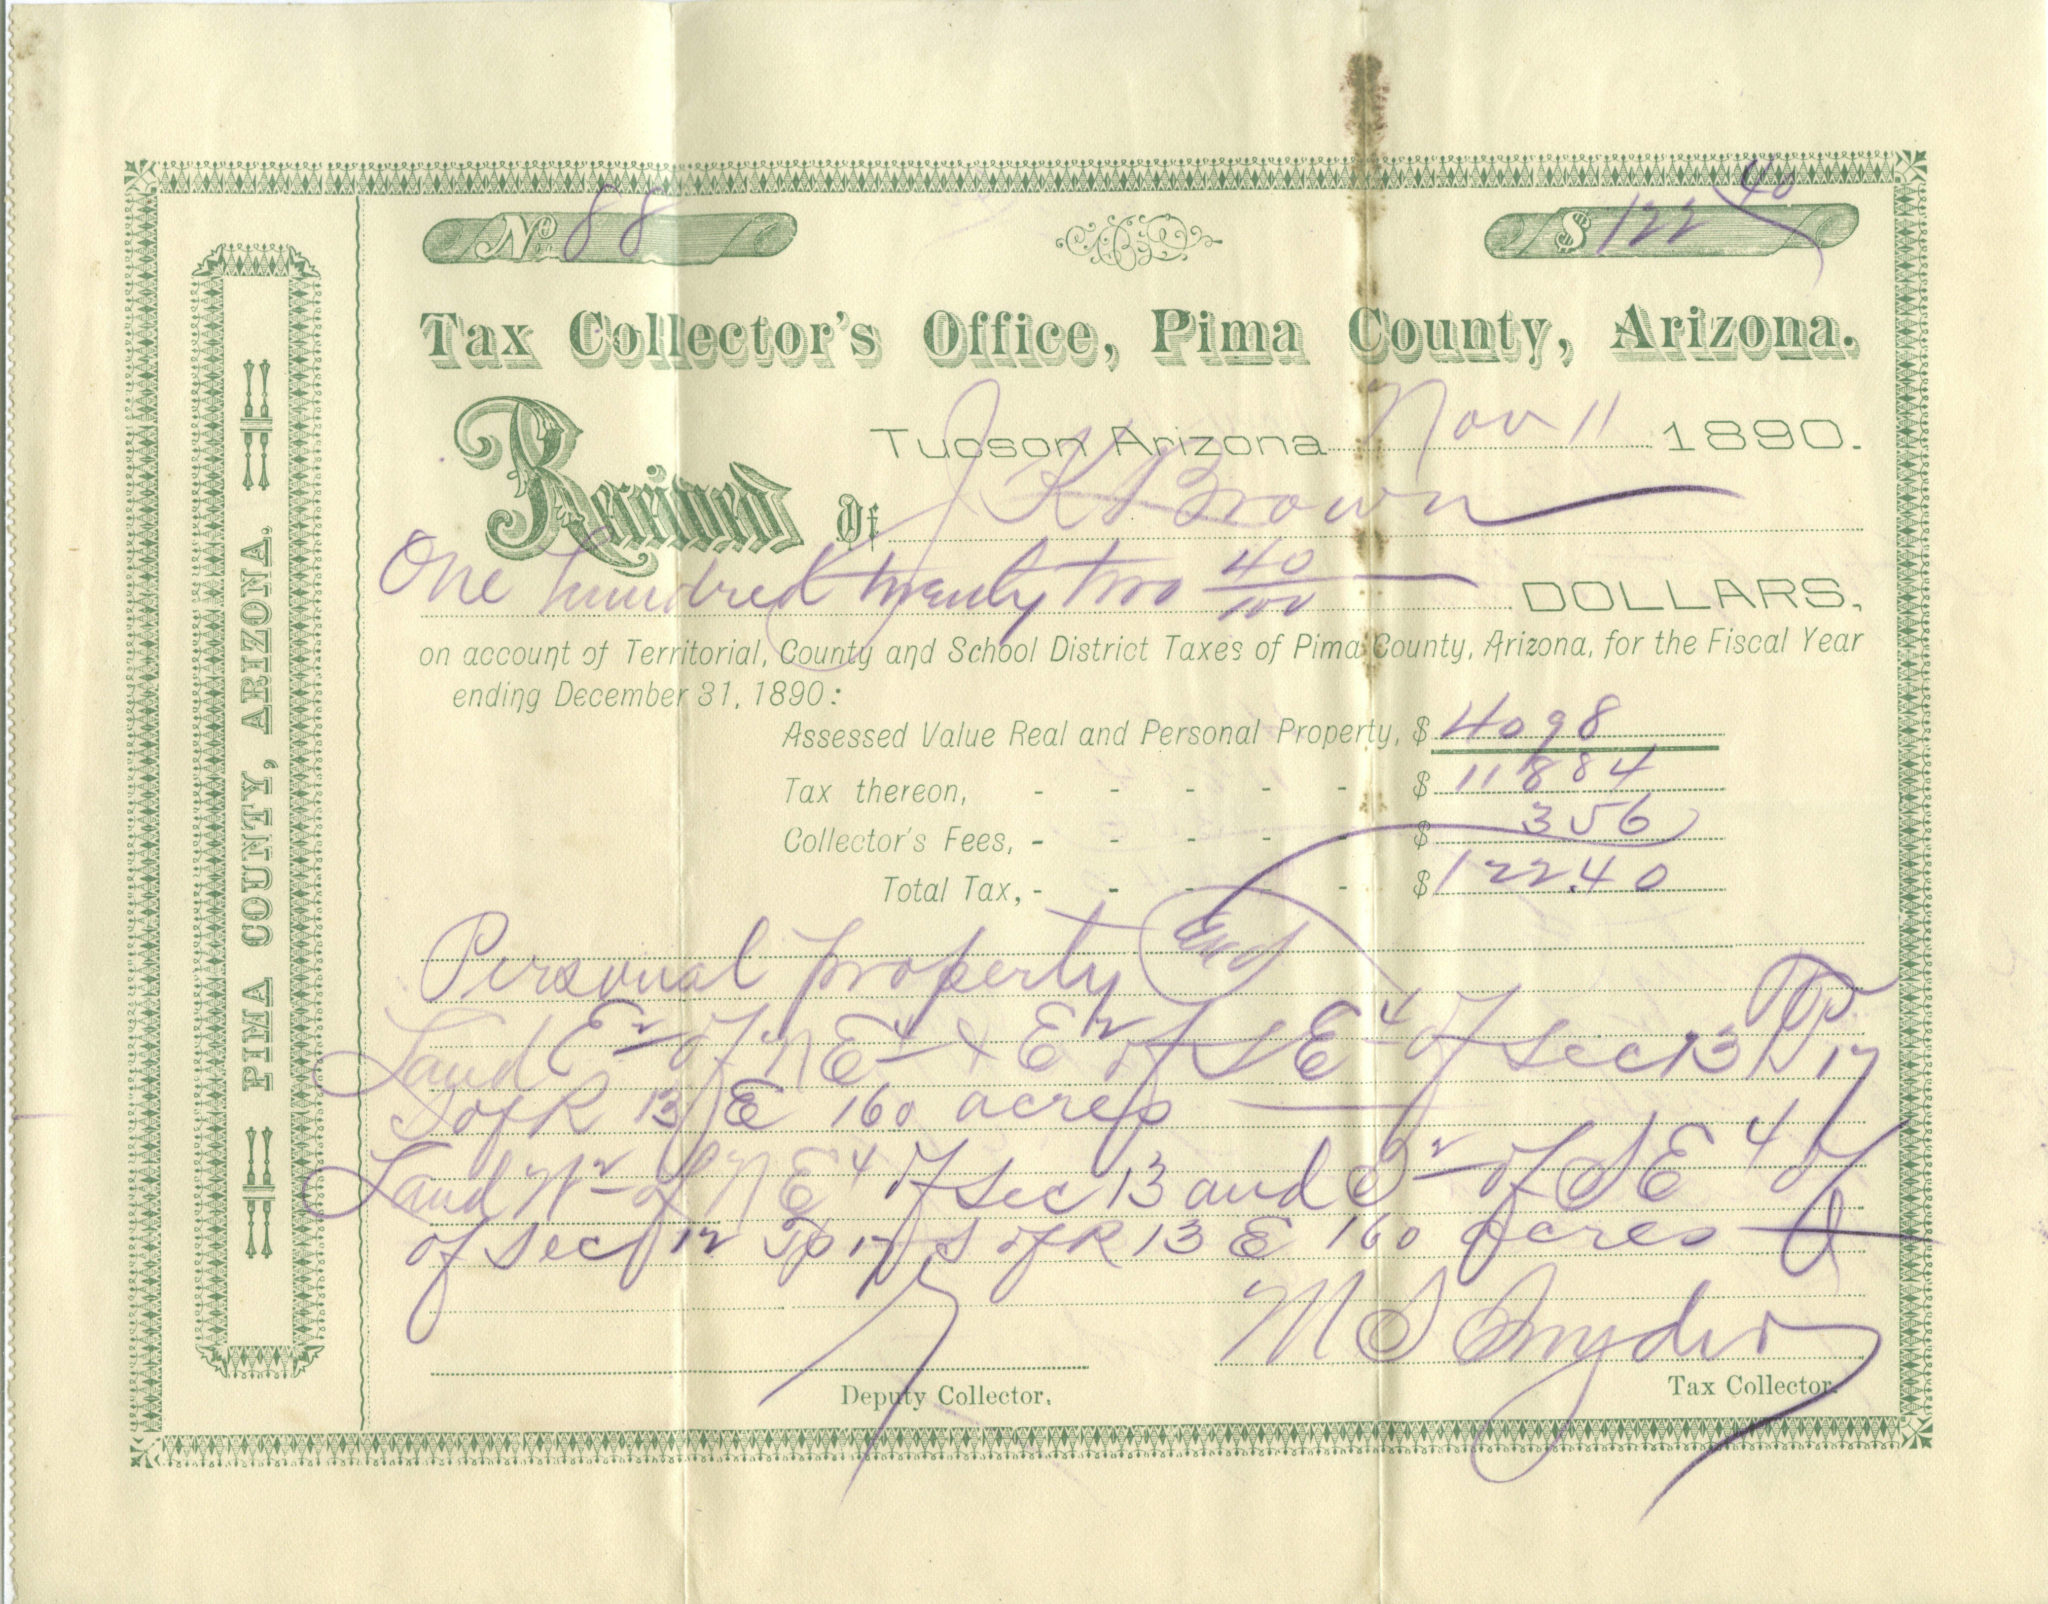 No 88
$ 122 40
Tax Collector's Office, Pima County, Arizona.
Tucson Arizona Nov 11 1890.
Received Of J K Brown
One hundred twenty two 40/100 DOLLARS,
on account of Territorial, County and School District Taxes of Pima County, Arizona, for the Fiscal Year
ending December 31, 1890:
Assessed Value Real and Personal Property, $ 4098
Tax thereon, - - - - - $ 118 84
Collector's Fees, - - - - - $ 3 56
Total Tax, - - - - - $ 122.40
Personal property
Land E 2 of N E 4 & E 2 of S E 4 of Sec 13 Tp 17
S of R 13 E 160 acres
Land W 2 of N E 4 of Sec 13 and S 2 of S E 4 of
of Sec 12 Tp 17 S of R 13 E 160 acres
M S Snyder
Deputy Collector.
Tax Collector.
PIMA COUNTY, ARIZONA.